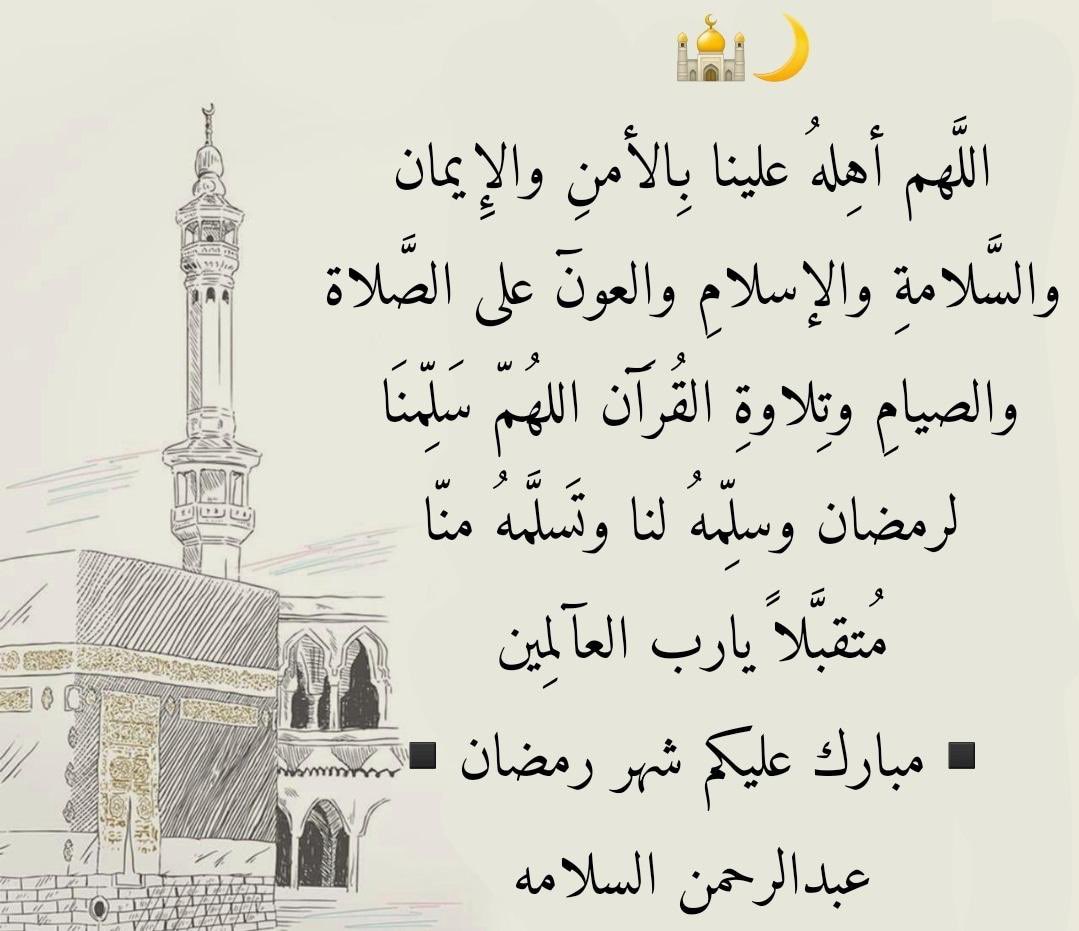 اللَّهم أهِلهُ علينا بِالأمنِ والإِيمان
والسَّلامةِ والإسلامِ والعونَ على الصَّلاة
والصيامِ وتِلاوةِ القُرَآن اللهُمّ سَلِّمنَا
لرمضان وسلِّمهُ لنا وتَسلَّمهُ منّا
مُتقبَّلاً يارب العآلمِين
▪ مبارك عليكم شهر رمضان ▪
عبدالرحمن السلامه